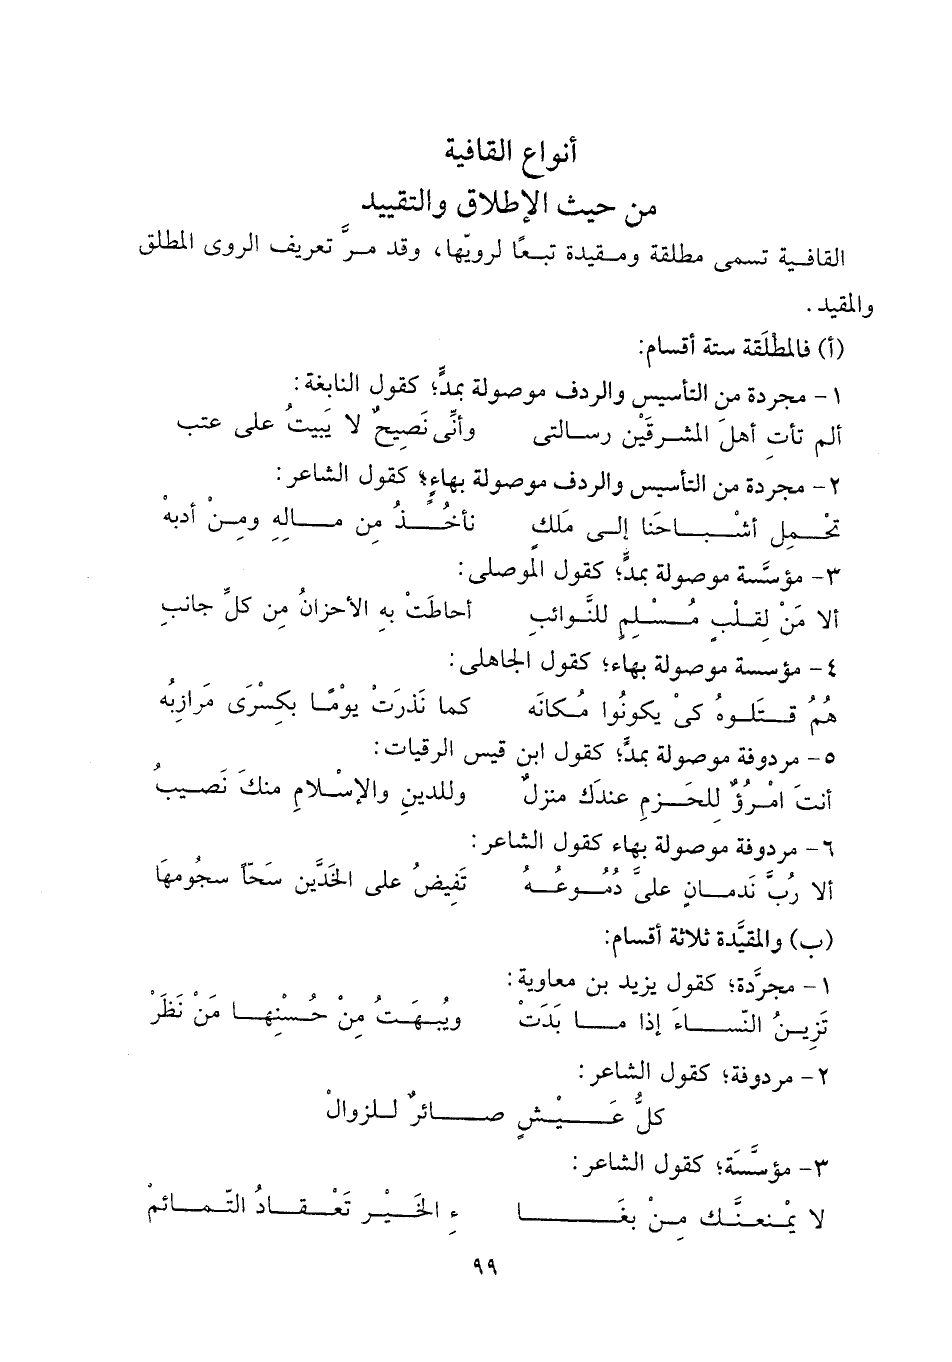 أنواع القافية
من حيث الإطلاق والتقييد
القافية تسمى مطلقة ومقيدة تبعًا لرويّها، وقد مرَّ تعريف الروى المطلق
والمقيد .
(أ) فالمطلَقة ستة أقسام:
١ – مجردة من التأسيس والردف موصولة بمدٍّ؛ كقول النابغة :
ألم تأتِ أهلَ المشرقَيْن رسالتى وأنِّى نَصِيحٌ لا يَبيتُ على عتبِ
٢ – مجردة من التأسيس والردف موصولة بهاءٍ؛ كقول الشاعر :
تحْمِل أشْباحَنا إلى مَلكٍ نأخُذُ من مالِهِ ومنْ أدبهْ
٣ – مؤسَّسة موصولة بمدٍّ؛ كقول الموصلى :
ألا مَنْ لِقلْبٍ مُسْلمٍ للنَّوائبِ أحاطَتْ به الأحزانُ مِن كلِّ جانبِ
٤ – مؤسسة موصولة بهاء؛ كقول الجاهلى :
هُمُ قتَلوهُ كىْ يكونُوا مُكانَه كما نَذرَتْ يوْمًا بكِسْرَى مَرازبُه
٥ – مردوفة موصولة بمدٍّ؛ كقول ابن قيس الرقيات :
أنتَ امْرُؤٌ للحَزمِ عندَك منزلٌ وللدينِ والإسْلامِ منكَ نَصيبُ
٦ – مردوفة موصولة بهاء كقول الشاعر :
ألا رُبَّ نَدمانٍ علىَّ دُمُوعُهُ تَفِيضُ على الخَدَّينِ سَحّاً سجُومهَا
(ب) والمقيَّدة ثلاثة أقسام:
١ – مجرَّدة؛ كقول يزيد بن معاوية :
تَزِينُ النّساءَ إذا ما بَدَتْ ويُبهَتُ مِنْ حُسْنِها مَنْ نَظَرْ
٢ – مردوفة؛ كقول الشاعر :
كلُّ عَيْشٍ صائرٌ للزوالْ
٣ – مؤسَّسَة؛ كقول الشاعر :
لا يمْنعنَّك مِنْ بغَا ءِ الخَيْرِ تَعْقادُ التّمائمْ
٩٩